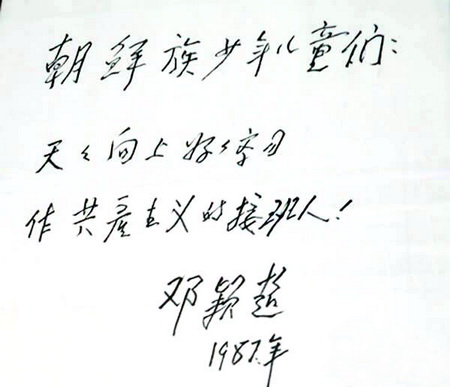 朝鲜族少年儿童们:
天々向上好々学习
作共产主义的接班人!
邓颖超
1987.年